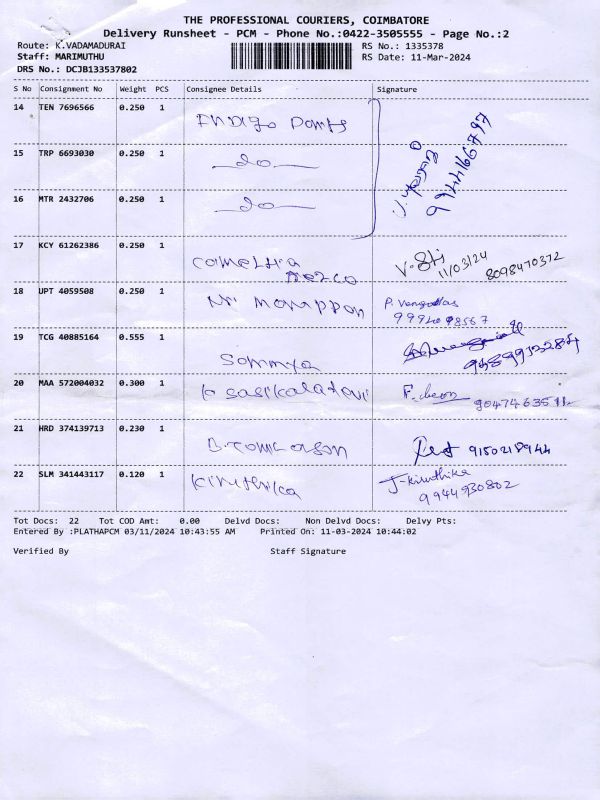 THE PROFESSIONAL COURIERS, COIMBATORE
Delivery Runsheet - PCM - Phone No.:0422-3505555 - Page No.:2
Route: K.VADAMADURAI RS No.: 1335378
Staff: MARIMUTHU RS Date: 11-Mar-2024
DRS No.: DCJB133537802
S No Consignment No Weight PCS Consignee Details Signature
14 TEN 7696566 0.250 1 Indigo Pants
15 TRP 6693030 0.250 1 do 9944166797
16 MTR 2432706 0.250 1 do
17 KCY 61262386 0.250 1 V. 11/03/24 8098470372
18 UPT 4059508 0.250 1 P.
19 TCG 40885164 0.555 1 Sowmya
20 MAA 572004032 0.300 1 K Sasikaladevi
21 HRD 374139713 0.230 1 9150218944
22 SLM 341443117 0.120 1 Kiruthika J-Kiruthika
9944930802
Tot Docs: 22 Tot COD Amt: 0.00 Delvd Docs: Non Delvd Docs: Delvy Pts:
Entered By :PLATHAPCM 03/11/2024 10:43:55 AM Printed On: 11-03-2024 10:44:02
Verified By Staff Signature